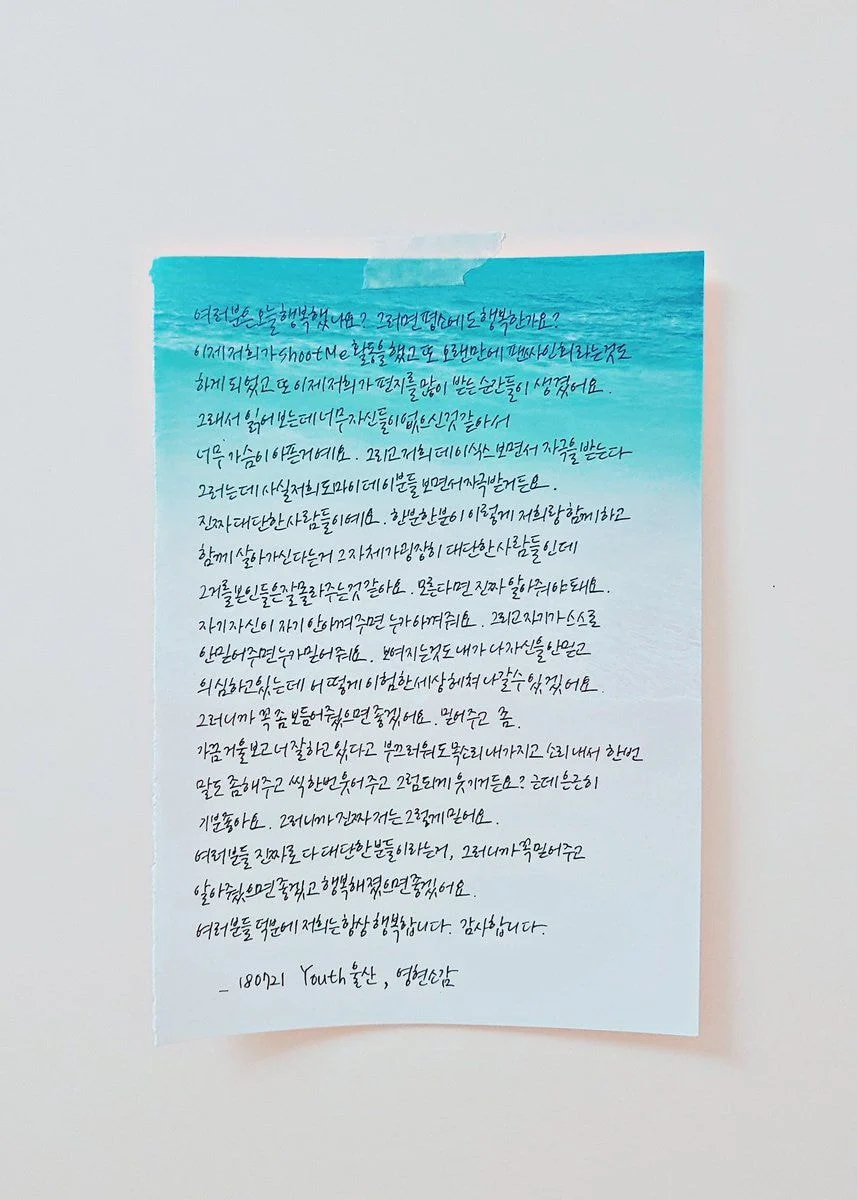 여러분은 오늘 행복했나요? 그러면 평소에도 행복한가요?
이제 저희가 shoot Me 활동을 했고 또 오랜만에 팬싸인회라는 것도
하게 되었고 또 이제 저희가 편지를 많이 받는 순간들이 생겼어요.
그래서 읽어 보는데 너무 자신들이 없으신것 같아서
너무 가슴이 아픈거예요. 그리고 저희 데이식스 보면서 자극을 받는다
그러는데 사실 저희도 마이데이분들 보면서 자극받거든요.
진짜 대단한 사람들이예요. 한분한분이 이렇게 저희랑 함께하고
함께 살아가신다는거 그 자체가 굉장히 대단한 사람들인데
그거를 본인들은 잘 몰라주는것 같아요. 모른다면 진짜 알아줘야돼요.
자기자신이 자기 안아껴주면 누가 아껴줘요. 그리고 자기가 스스로
안믿어주면 누가 믿어줘요. 보여지는것도 내가 나 자신을 안믿고
의심하고있는데 어떻게 이 험한 세상 헤쳐 나갈수 있겠어요.
그러니까 꼭 좀 보듬어줬으면 좋겠어요. 믿어주고 좀.
가끔 거울보고 너 잘하고있다고 부끄러워도 목소리 내가지고 소리내서 한번
말도 좀 해주고 씩 한번 웃어주고 그럼 되게 웃기거든요? 근데 은근히
기분좋아요. 그러니까 진짜 저는 그렇게 믿어요.
여러분들 진짜로 다 대단한분들이라는거, 그러니까 꼭 믿어주고
알아줬으면 좋겠고 행복해졌으면 좋겠어요.
여러분들 덕분에 저희는 항상 행복합니다. 감사합니다.
_ 180721 Youth 울산, 영현소감